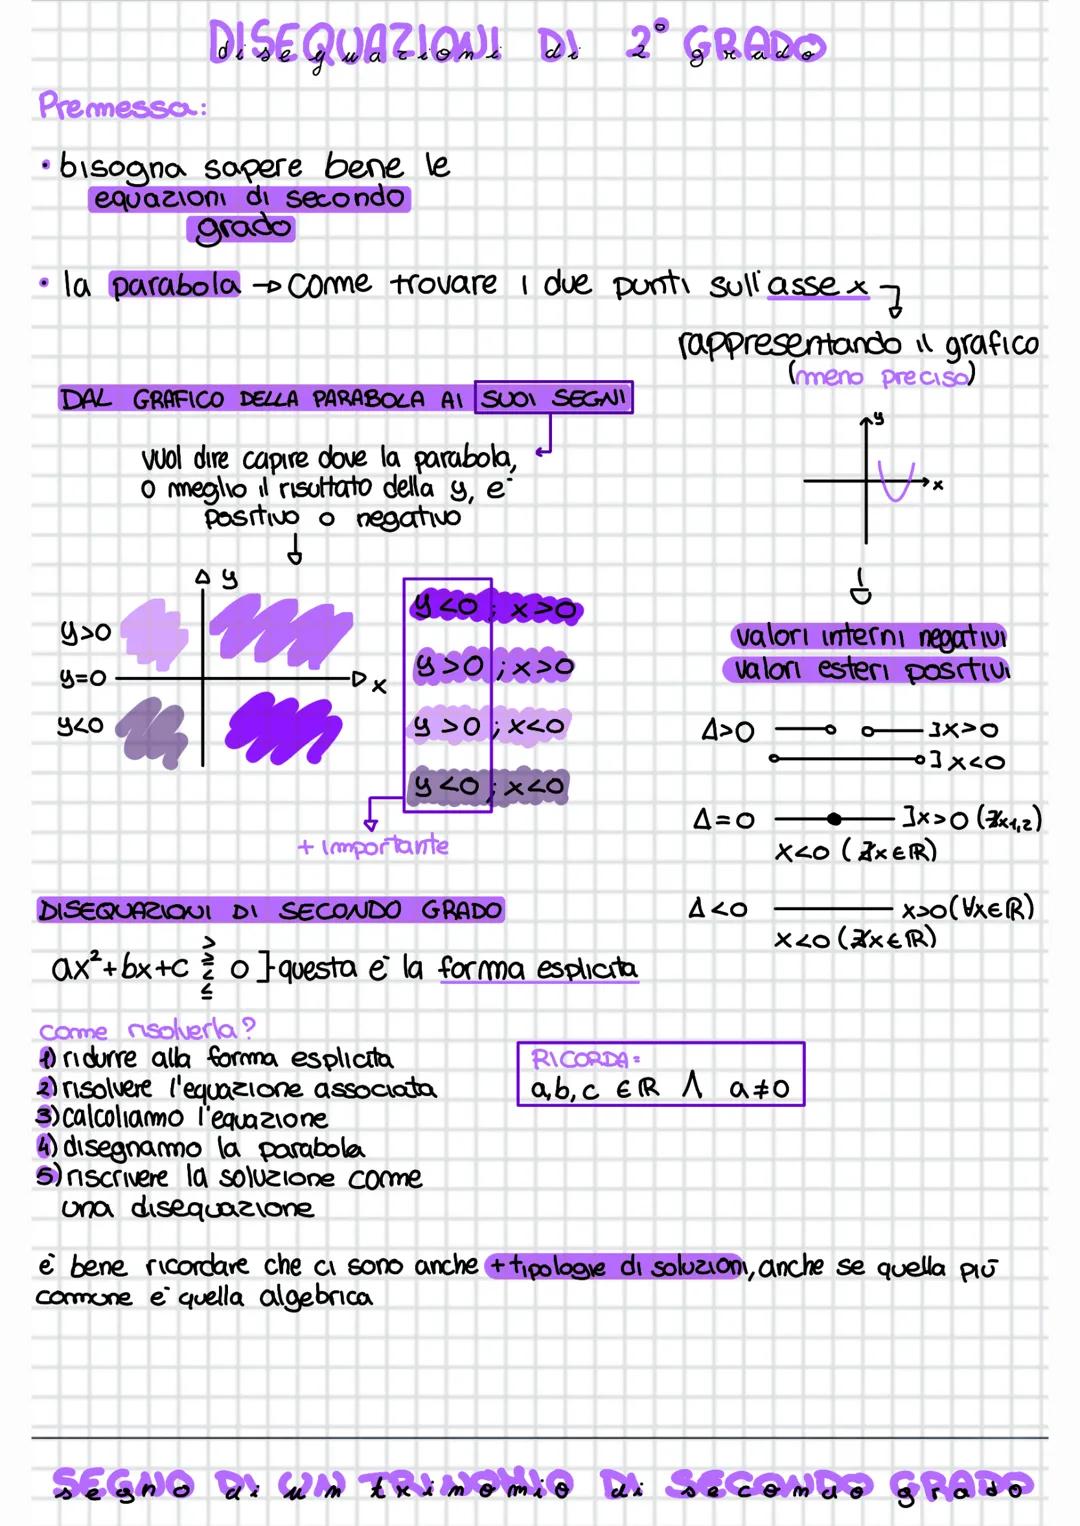 DISEQUAZIONI DI 2° GRADO
disequazioni di grado
Premessa:
• bisogna sapere bene le
equazioni di secondo
grado
• la parabola → come trovare i due punti sull'asse x
rappresentando il grafico
(meno preciso)
DAL GRAFICO DELLA PARABOLA AI SUOI SEGNI
vuol dire capire dove la parabola,
o meglio il risultato della y, e'
positivo o negativo
y
x
y
y>0
y=0
y<0
x
y<0 ; x>0
y>0 ; x>0
y>0 ; x<0
y<0 ; x<0
+ importante
valori interni negativi
valori esteri positivi
Δ>0 ∃x>0
∃x<0
Δ=0 ∃x>0 (∄x1,2)
x<0 (∄x∈ℝ)
Δ<0 x>0 (∀x∈ℝ)
x<0 (∄x∈ℝ)
DISEQUAZIONI DI SECONDO GRADO
ax²+bx+c > ≥ < ≤ 0 ]-questa e' la forma esplicita
come risolverla?
1) ridurre alla forma esplicita
2) risolvere l'equazione associata
3) calcoliamo l'equazione
4) disegnamo la parabola
5) riscrivere la soluzione come
una disequazione
RICORDA:
a,b,c ∈ℝ ∧ a≠0
e' bene ricordare che ci sono anche + tipologie di soluzioni, anche se quella più
comune e' quella algebrica
SEGNO DI UN TRINOMIO DI SECONDO GRADO
segno di un trinomio di secondo grado